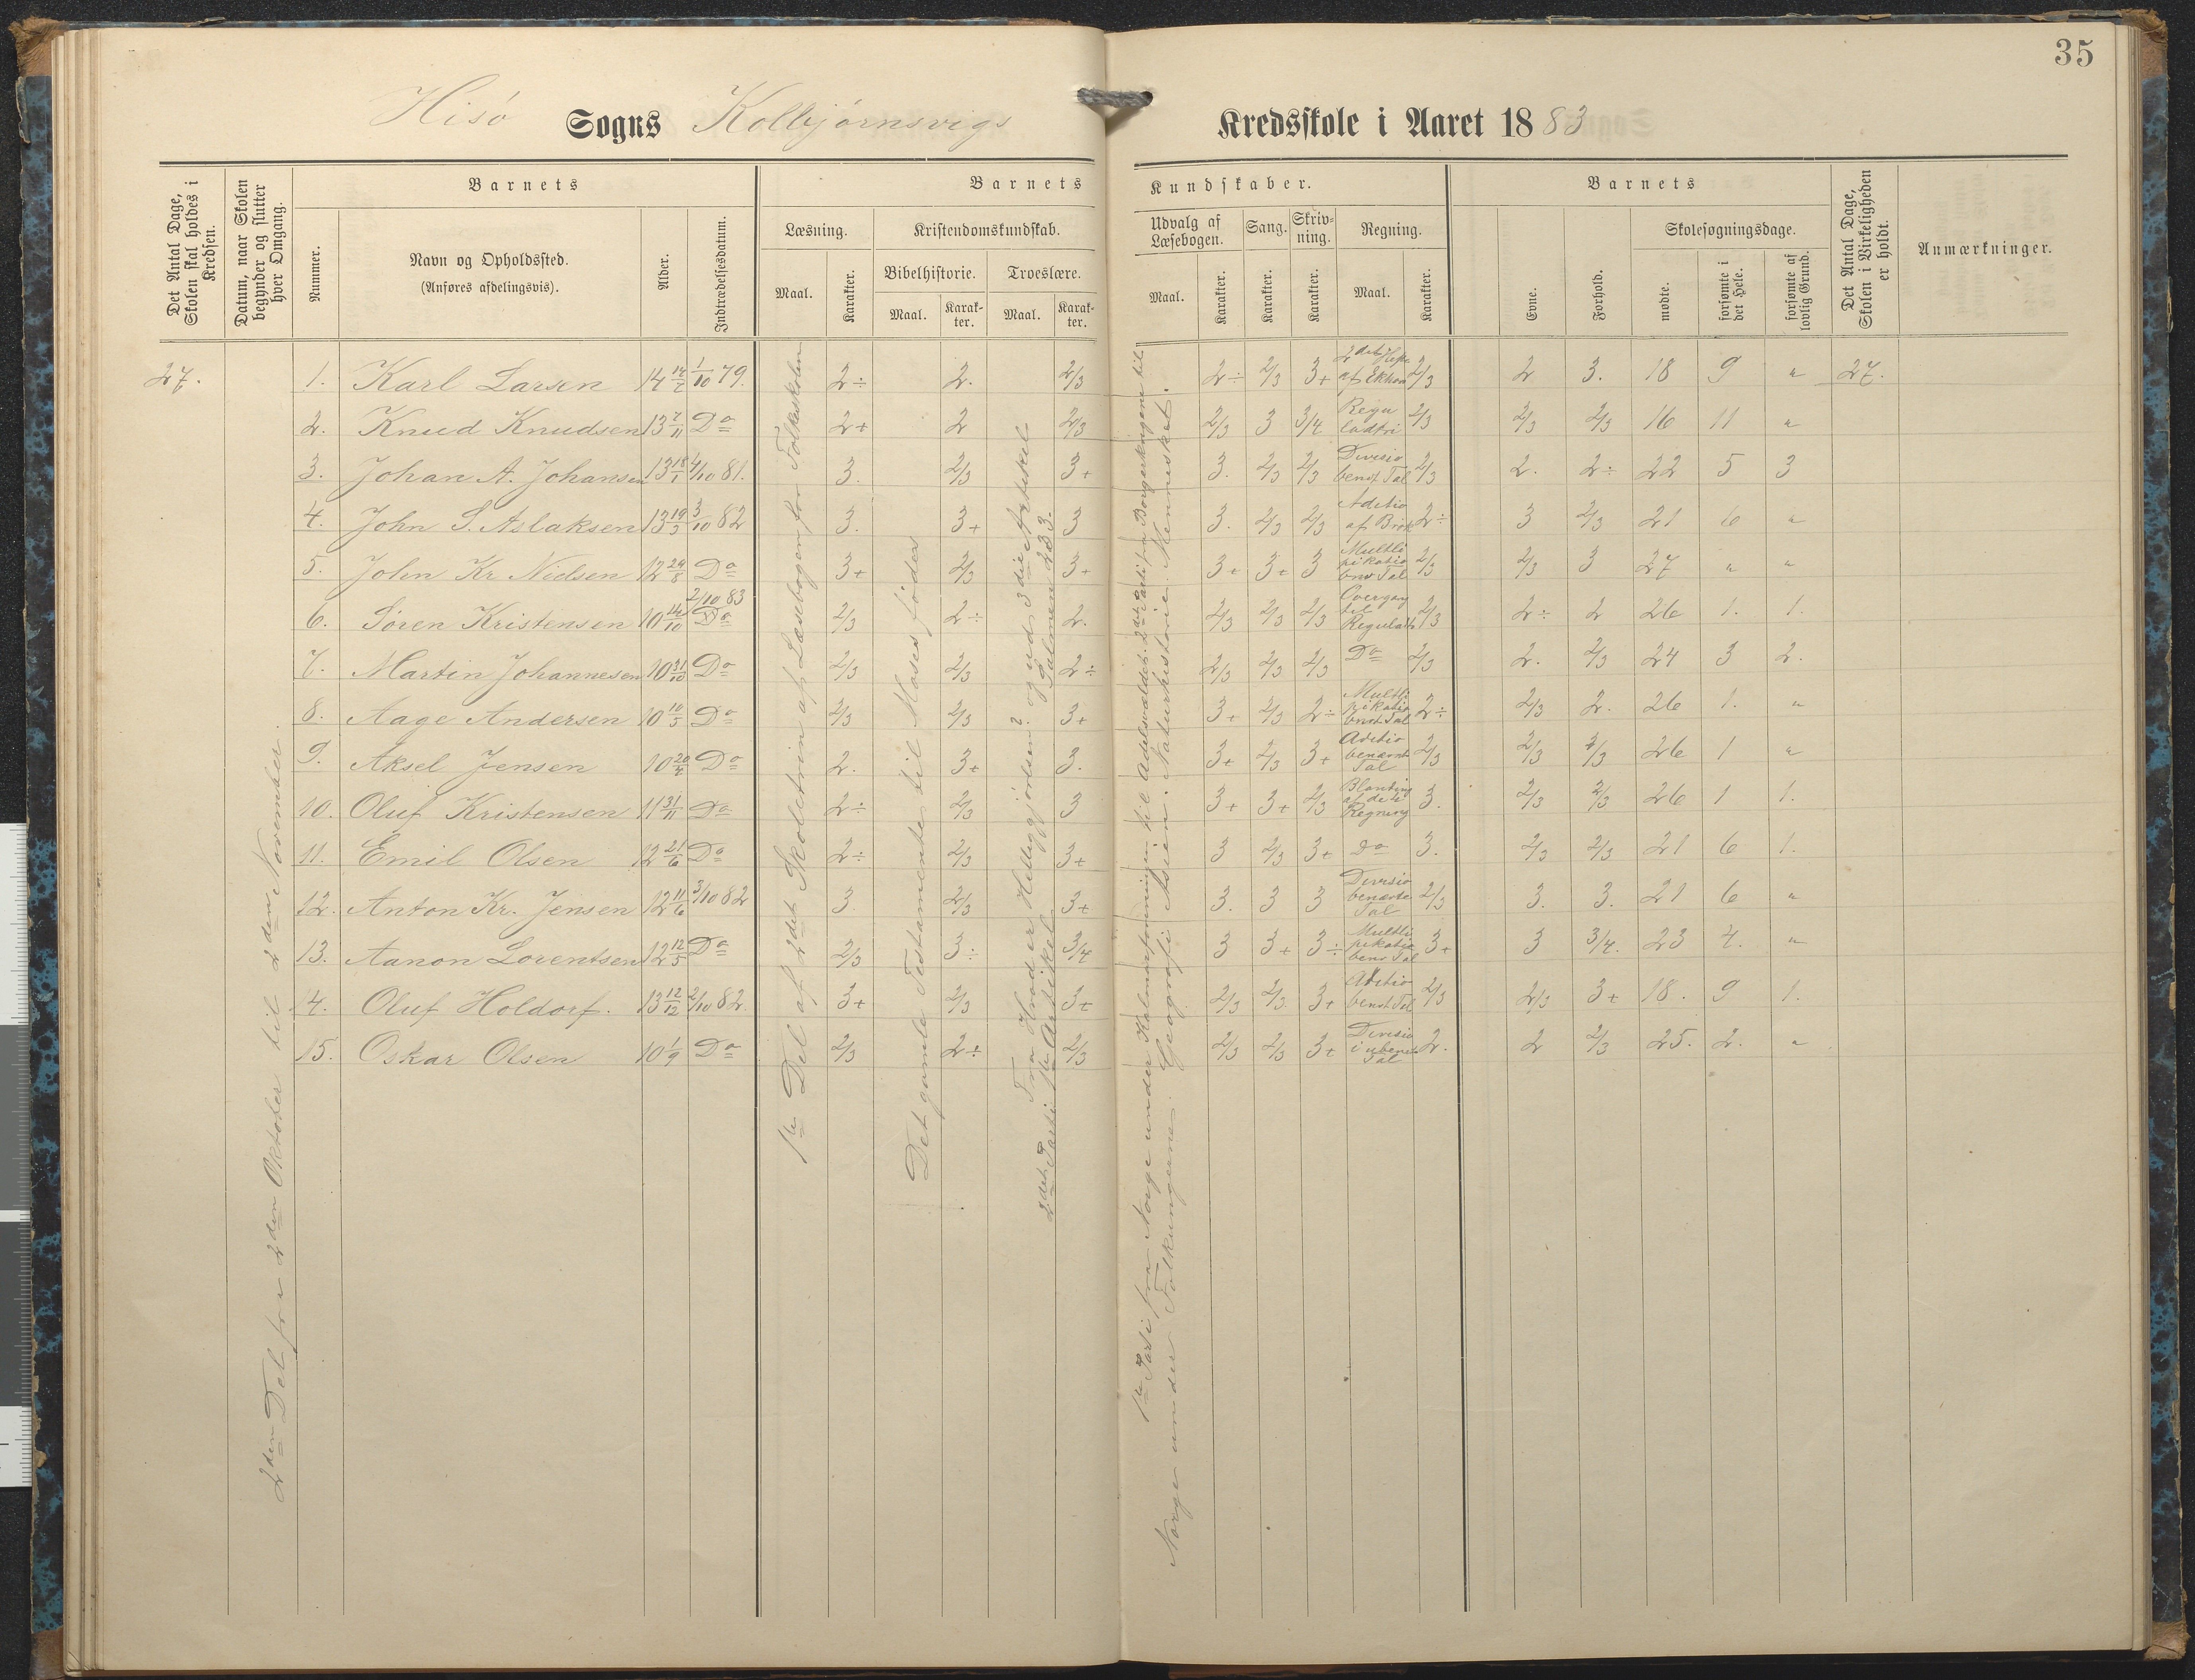 35
Hisö Sogns Kolbjørnsvigs Kredsskole i Aaret 1883
Det Antal Dage, Skolen skal holdes i Kredsen.
Datum, naar Skolen begynder og slutter hver Omgang.
Barnets
Nummer.
Navn og Opholdssted.
(Anføres afdelingsvis).
Alder.
Indtrædelsesdatum.
Barnets Kundskaber.
Læsning.
Maal.
Karakter.
Kristendomskundskab.
Bibelhistorie.
Maal.
Karakter.
Troeslære.
Maal.
Karakter.
Udvalg af Læsebogen.
Maal.
Karakter.
Sang.
Karakter.
Skrivning.
Karakter.
Regning.
Maal.
Karakter.
Barnets
Evne.
Forhold.
Skolesøgningsdage.
mødte.
forsømte i det Hele.
forsømte af lovlig Grund.
Det Antal Dage, Skolen i Virkeligheden er holdt.
Anmærkninger.
27.
2den Del fra 2den Oktober til 2den November.
1te Del af 2det Skoletrin af Læsebogen for Folkeskolen
Det gamle Testamente til Moses fødes
Fra Hvad er Helliggjørelsen? og ud 3die Artikel
2det Parti 1te Artikel Salmen 233.
1te Parti fra Norge under Kalmarforeningen til Adelsvældet. 2det Parti fra Borgerkrigene til
Norge under Folkungerne. Geografi Asien. Naturhistorie. Mennesket.
1. Karl Larsen 14 1/10 79. 2÷ 2. 2/3 2÷ 2/3 3+ 2det Hefte af 2/3 2 3. 18 9 " 27.
2. Knud Knudsen 13 7/11 Do 2+ 2 2/3 2/3 3 3/4 Regu ladtri 2/3 2/3 2/3 16 11 "
3. Johan A. Johansen 13 18/1 4/10 81. 3. 2/3 3+ 3. 2/3 2/3 Divisio bent Tal 2/3 2. 2÷ 22 5 3
4. John S. Aslaksen 13 19/3 3/10 82 3. 3+ 3 3. 2/3 2/3 Aditio af Brøk 2÷ 3 2/3 21 6 "
5. John Kr Nielsen 12 29/8 Do 3+ 2/3 3+ 3+ 3+ 3 Multli pikatio bnv Tal 2/3 2/3 3 27 " "
6. Søren Kristensen 10 14/10 2/10 83 Do 2/3 2÷ 2. 2/3 2/3 2/3 Overgang til Reguladtr 2/3 2÷ 2 26 1. 1.
7. Martin Johannesen 10 31/10 Do 2/3 2/3 2÷ 2/3 2/3 2/3 Do 2/3 2. 2/3 24 3 2.
8. Aage Andersen 10 10/5 Do 2/3 2/3 3+ 3+ 2/3 2÷ Multli pikatio bnvt Tal 2÷ 2/3 2. 26 1. "
9. Aksel Jensen 10 20/4 Do 2. 3+ 3. 3+ 2/3 3+ Aditio benævnt Tal 2/3 2/3 2/3 26 1 "
10. Oluf Kristensen 11 31/11 Do 2÷ 2/3 3 3+ 3+ 2/3 Blanding af de 4 Regning 3. 2/3 2/3 26 1 1.
11. Emil Olsen 12 21/6 Do 2÷ 2/3 3+ 3 2/3 3+ Do 3. 2/3 2/3 21 6 1.
12. Anton Kr. Jensen 12 11/6 3/10 82 3. 2/3 3+ 3. 3 3 Divisio benævte Tal 2/3 3. 3. 21 6 "
13. Aanon Lorentsen 12 12/5 Do 2/3 3÷ 3/4 3 3+ 3÷ Multli pikatio benv Tal 3+ 3 3/4. 23 4. "
14. Oluf Holdorf. 13 12/12 2/10 82. 3+ 2/3 3+ 2/3 2/3 3+ Aditio benvt Tal 2/3 2/3 3+ 18. 9 1.
15. Oskar Olsen 10 1/9 Do 2/3 2÷ 2/3 2/3 2/3 3+ Divisio i ubenv Tal 2. 2 2/3 25. 2. "